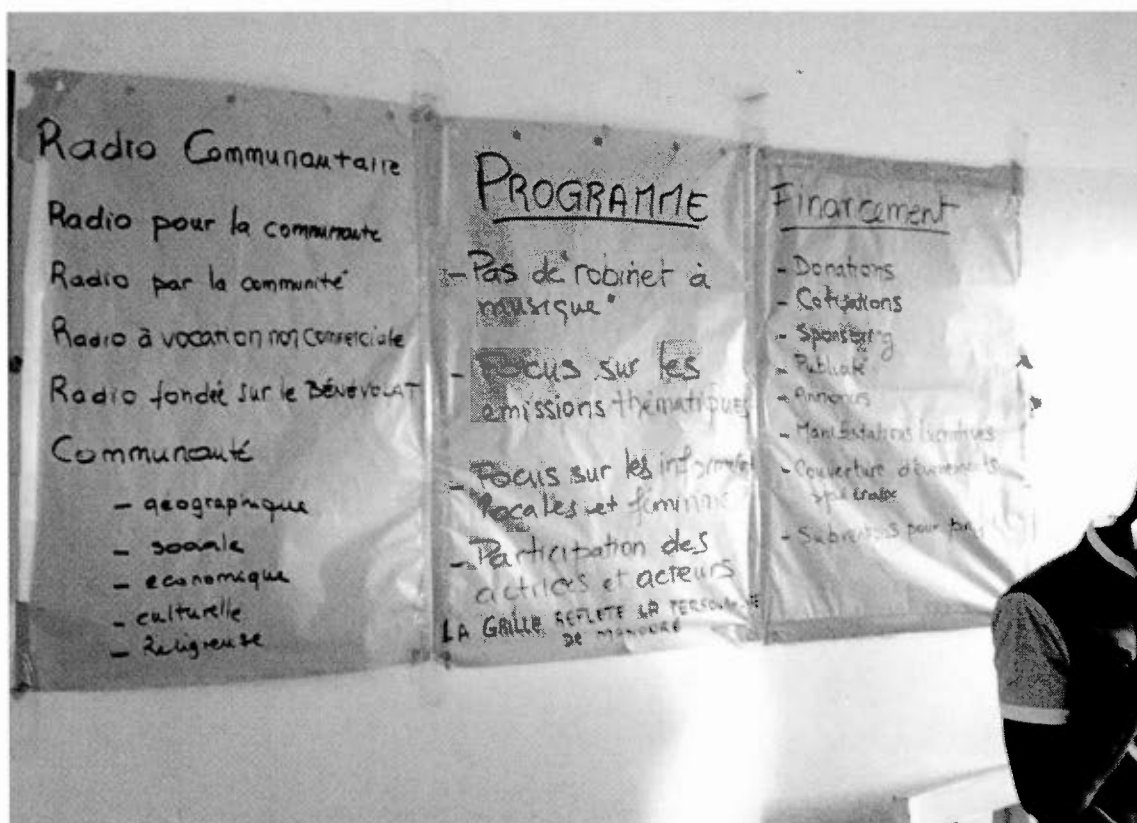 Radio Communautaire
Radio pour la communaute
Radio par la communité
Radio à vocation non commerciale
Radio fondée sur le BÉNÉVOLAT
Communauté
- geographique
- sociale
- economique
- culturelle
- Religieuse
PROGRAMME
- Pas de "robinet à
musique"
- Focus sur les
emissions thématiques
- Focus sur les
locales et
- Participation des
actrices et acteurs
LA GRILLE REFLETE LA
DE
Financement
- Donations
- Cotisations
- Publicité
- Annonces
- Manifestations lucratives
- Couverture d'évenements
- Subventions pour